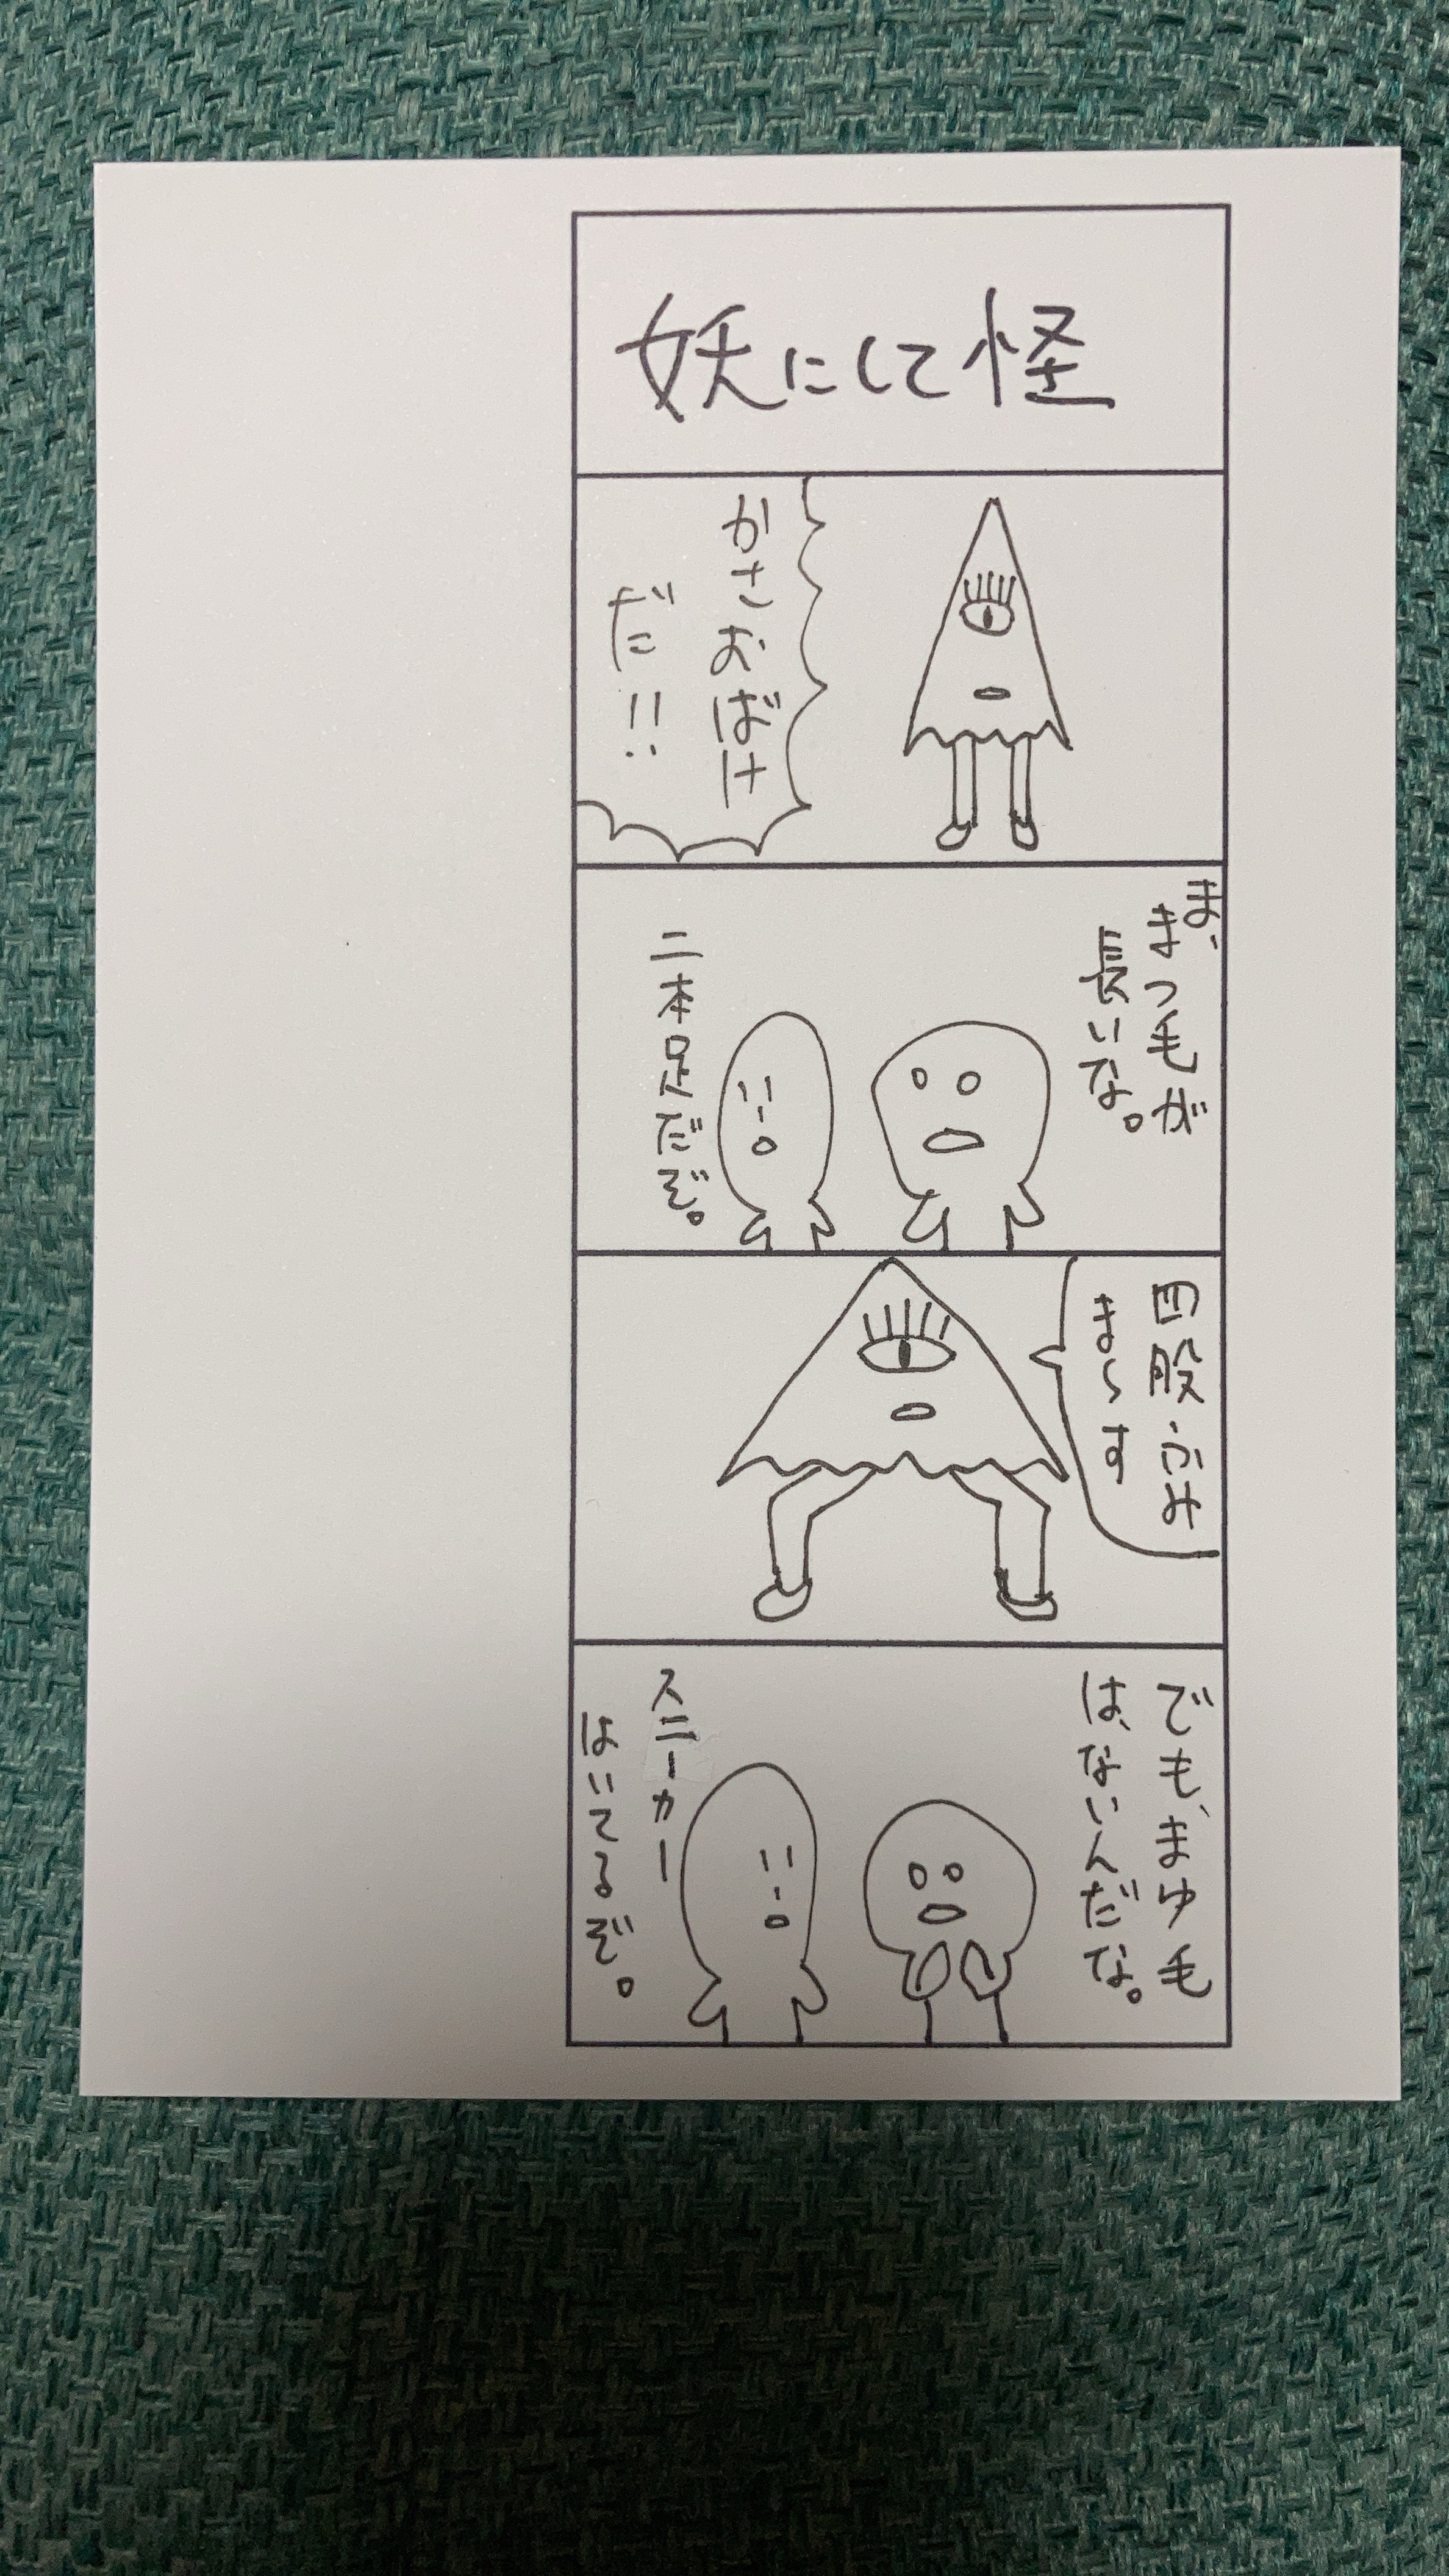 妖にして怪
かさおばけ
だ!!
ま、
まつ毛が
長いな。
二本足だぞ。
四股ふみ
ま〜す
でも、まゆ毛
は、ないんだな。
スニーカー
はいてるぞ。